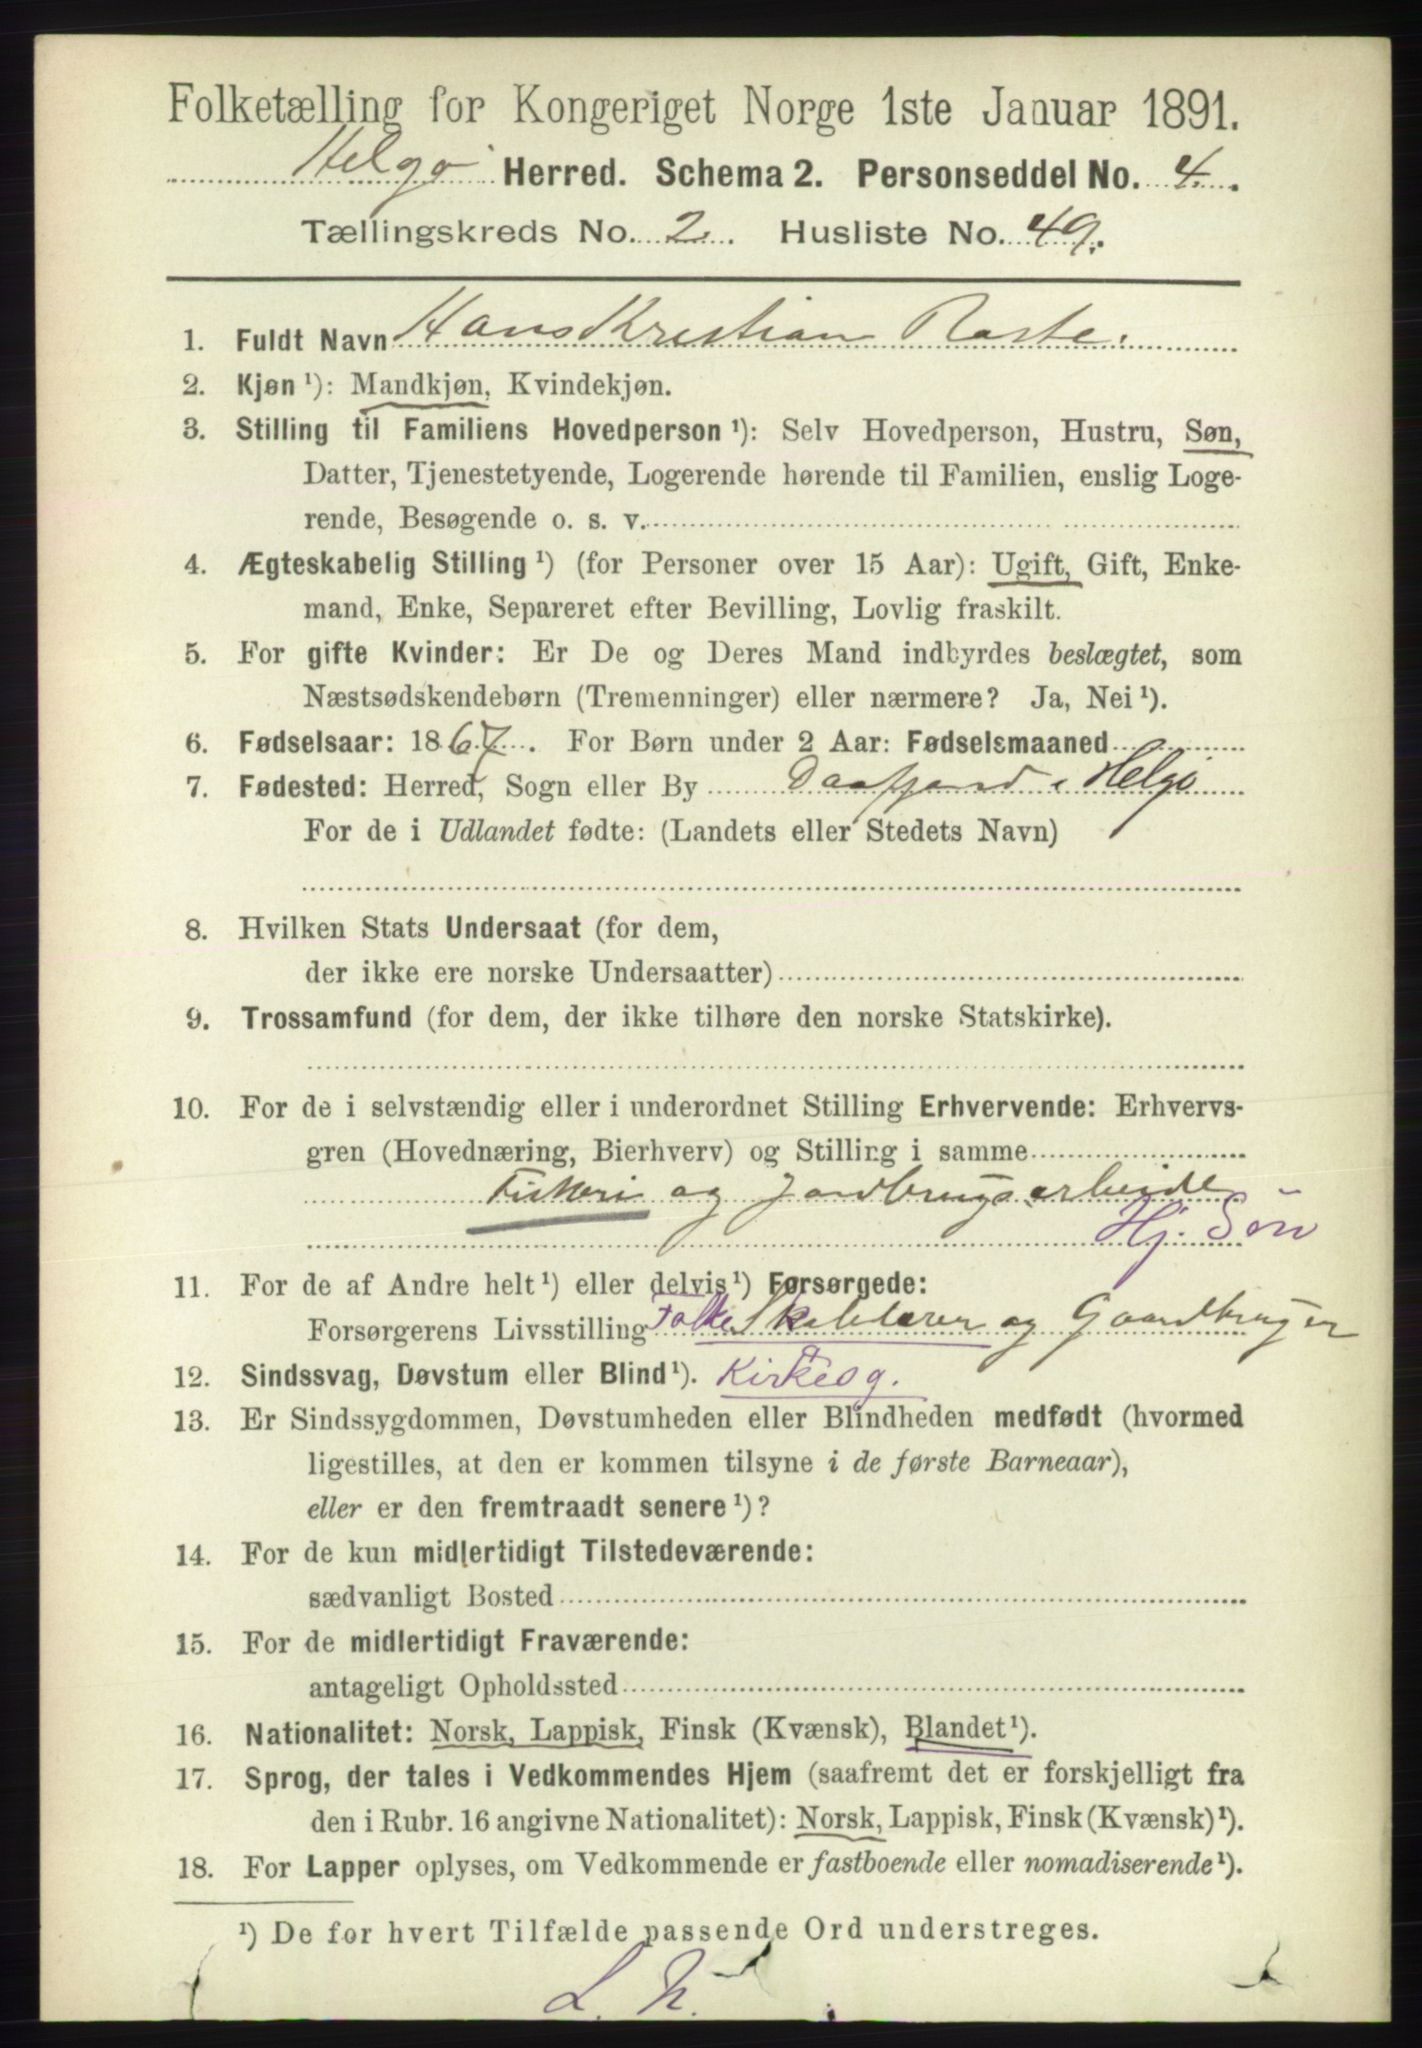 Folketælling for Kongeriget Norge 1ste Januar 1891.
Helgø Herred. Schema 2. Personseddel No. 4.
Tællingskreds No. 2. Husliste No. 49.
1. Fuldt Navn Hans Kristian Raste.
2. Kjøn ¹): Mandkjøn, Kvindekjøn.
3. Stilling til Familiens Hovedperson ¹): Selv Hovedperson, Hustru, Søn,
Datter, Tjenestetyende, Logerende hørende til Familien, enslig Loge-
rende, Besøgende o. s. v.
4. Ægteskabelig Stilling ¹) (for Personer over 15 Aar): Ugift, Gift, Enke-
mand, Enke, Separeret efter Bevilling, Lovlig fraskilt.
5. For gifte Kvinder: Er De og Deres Mand indbyrdes beslægtet, som
Næstsødskendebørn (Tremenninger) eller nærmere? Ja, Nei ¹).
6. Fødselsaar: 1867. For Børn under 2 Aar: Fødselsmaaned
7. Fødested: Herred, Sogn eller By Daafjord i Helgø
For de i Udlandet fødte: (Landets eller Stedets Navn)
8. Hvilken Stats Undersaat (for dem,
der ikke ere norske Undersaatter)
9. Trossamfund (for dem, der ikke tilhøre den norske Statskirke).
10. For de i selvstændig eller i underordnet Stilling Erhvervende: Erhvervs-
gren (Hovednæring, Bierhverv) og Stilling i samme
Fiskeri og Jordbrugsarbeide
Hj. Søn
11. For de af Andre helt ¹) eller delvis ¹) Forsørgede:
Forsørgerens Livsstilling Folke Skolelærer og Gaardbruger
12. Sindssvag, Døvstum eller Blind ¹). Kirkesg.
13. Er Sindssygdommen, Døvstumheden eller Blindheden medfødt (hvormed
ligestilles, at den er kommen tilsyne i de første Barneaar),
eller er den fremtraadt senere ¹)?
14. For de kun midlertidigt Tilstedeværende:
sædvanligt Bosted
15. For de midlertidigt Fraværende:
antageligt Opholdssted
16. Nationalitet: Norsk, Lappisk, Finsk (Kvænsk), Blandet ¹).
17. Sprog, der tales i Vedkommendes Hjem (saafremt det er forskjelligt fra
den i Rubr. 16 angivne Nationalitet): Norsk, Lappisk, Finsk (Kvænsk) ¹).
18. For Lapper oplyses, om Vedkommende er fastboende eller nomadiserende ¹).
¹) De for hvert Tilfælde passende Ord understreges.
L. N.